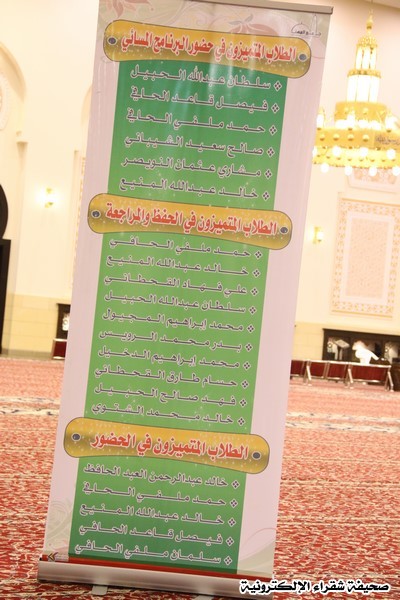 الطلاب المتميزون في حضور البرنامج المسائي
سلطان عبدالله الحبيل
فيصل قاعد الحافي
حمد ملفي الحافي
صالح سعيد الشيباني
مشاري عثمان النويصر
خالد عبدالله المنيع
الطلاب المتميزون في الحفظ والمراجعة
حمد ملفي الحافي
خالد عبدالله المنيع
علي فهاد القحطاني
سلطان عبدالله الحبيل
محمد إبراهيم المجيول
بدر محمد الرويس
محمد إبراهيم الدخيل
حسام طارق القحطاني
فهد صالح الحبيل
خالد محمد الشبتوي
الطلاب المتميزون في الحضور
خالد عبدالرحمن العبد الحافظ
حمد ملفي الحافي
خالد عبدالله المنيع
فيصل قاعد الحافي
سلمان ملفي الحافي
صحيفة شقراء الالكترونية